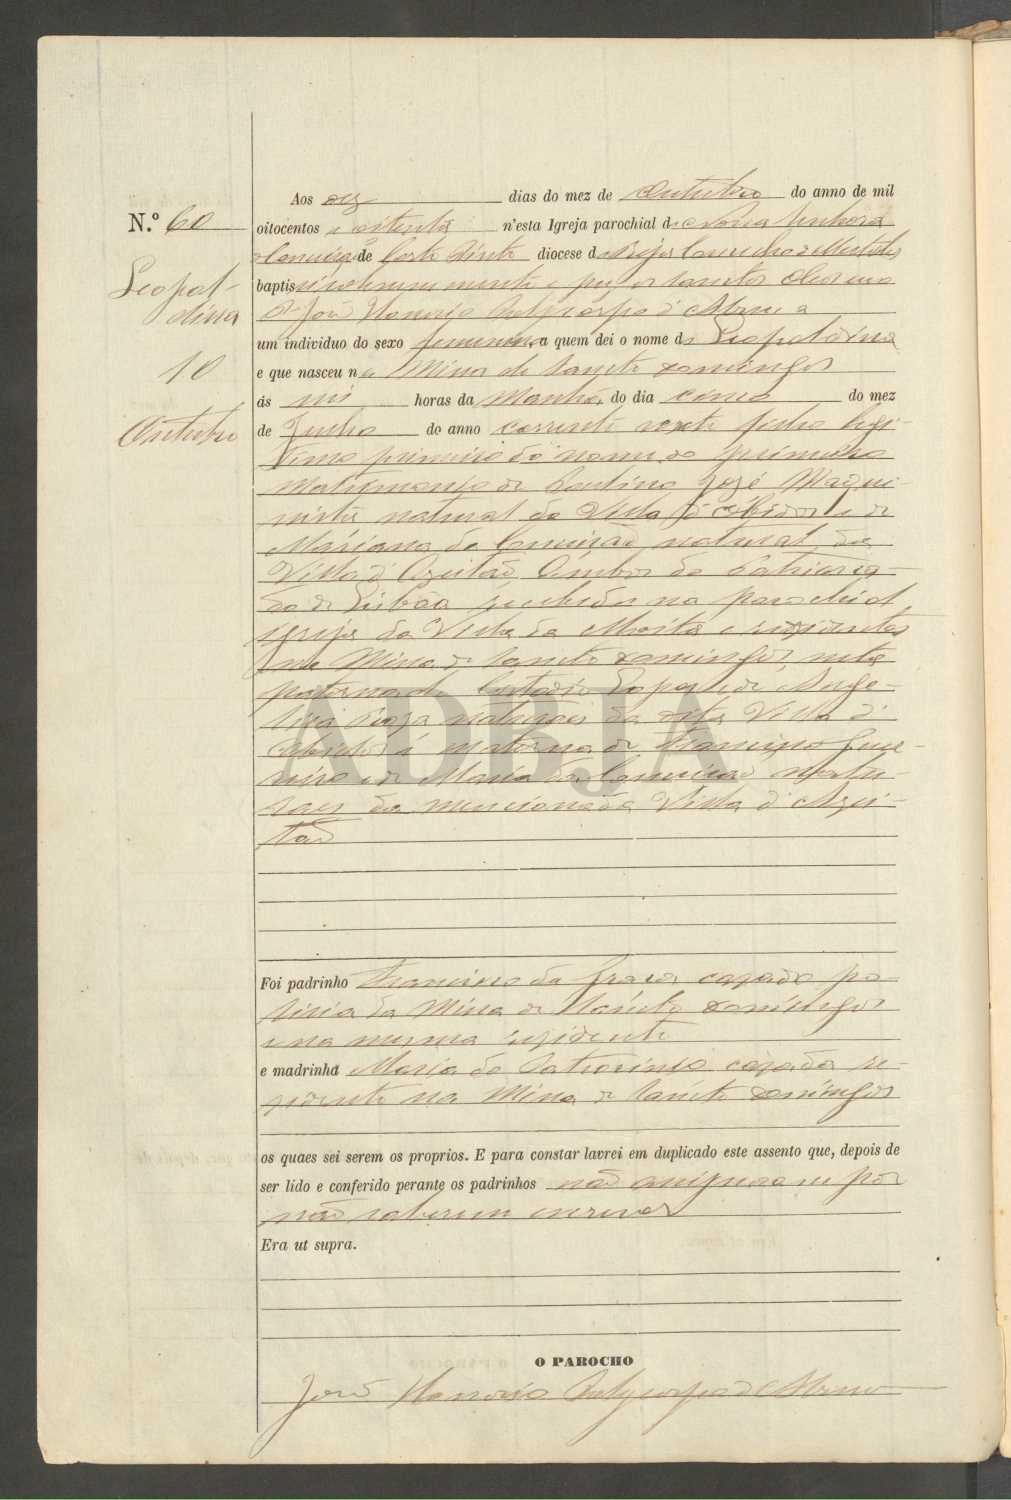 N.º 60
Leopol-
dina
10
Outubro
Aos dez dias do mez de Outubro do anno de mil
oitocentos e oitenta n'esta Igreja parochial de Nossa Senhora
da Conceição de Corte do Pinto diocese de Beja Concelho de Mertola
baptisei solemnemente e puz os sanctos Oleos eu
P. João Honorio Polycarpo d'Abreu a
um individuo do sexo feminino a quem dei o nome de Leopoldina
e que nasceu na Mina de Sancto Domingos
ás horas da Manhã do dia cinco do mez
de Junho do anno corrente filha legi-
tima primeira do nome do primeiro
matrimonio de José Maqui-
nista natural da Villa d'Obidos e de
Mariana da Conceição natural da
Villa d'Azeitão ambos do Patriarca-
do de Lisboa recebidos na parochial
igreja da Villa da Moita e residentes
na Mina de Sancto Domingos, neta
paterna de Custodio Lopes e de Ange-
lica Roza naturaes da dita Villa d'
Obidos e materna de Francisco
e de Maria da Conceição natu-
raes da mencionada Villa d'Azei-
tão
Foi padrinho Francisco da Graça cazado po-
licia da Mina de Sancto Domingos
e na mesma rezidente
e madrinha Maria do Patrocinio cazada re-
zidente na Mina de Sancto Domingos
os quaes sei serem os proprios. E para constar lavrei em duplicado este assento que, depois de
ser lido e conferido perante os padrinhos não assignaram por
não saberem escrever
Era ut supra.
O PAROCHO
João Honorio Polycarpo d'Abreu
ADBJA